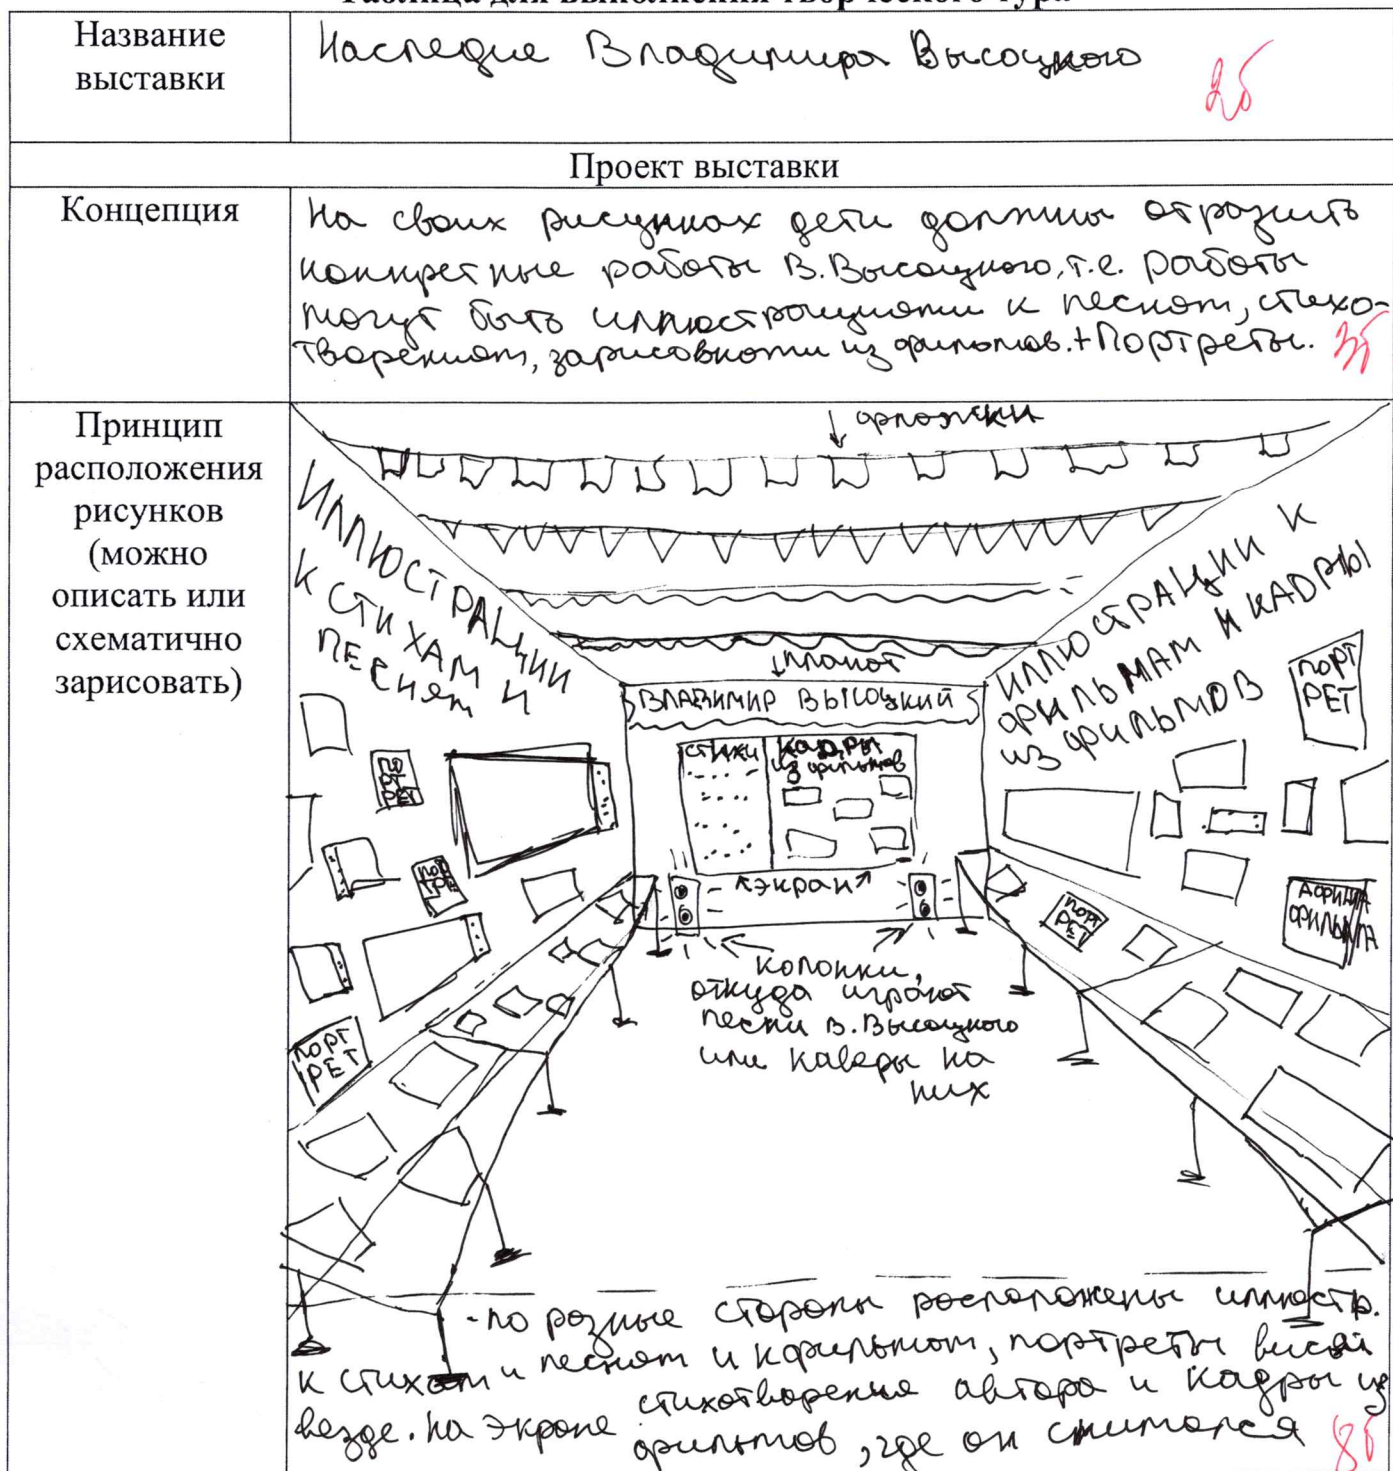 Таблица для выполнения творческого тура
Название
выставки
Наследие Владимира Высоцкого
2б
Проект выставки
Концепция
На своих рисунках дети должны отразить
конкретные работы В.Высоцкого, т.е. работы
могут быть иллюстрациями к песням, стихо-
творениям, зарисовками из фильмов.+Портреты.
3б
Принцип
расположения
рисунков
(можно
описать или
схематично
зарисовать)
↓ флажки
ИЛЛЮСТРАЦИИ
К СТИХАМ И
ПЕСНЯМ
ИЛЛЮСТРАЦИИ К
ФИЛЬМАМ И КАДРЫ
ИЗ ФИЛЬМОВ
↓плакат
ВЛАДИМИР ВЫСОЦКИЙ
СТИХИ
КАДРЫ
из фильмов
ПОРТ
РЕТ
ПО
РТ
РЕТ
ПОР
ТРЕ
ПОРТ
РЕТ
ПОРТ
РЕТ
АФИША
ФИЛЬМА
↖экран↗
колонки,
откуда играют
песни В.Высоцкого
или каверы на
них
- по разные стороны росположены иллюстр.
к стихам и песням и к фильмам, портреты висят
везде. На экране стихотворения автора и кадры из
фильмов, где он снимался
8б